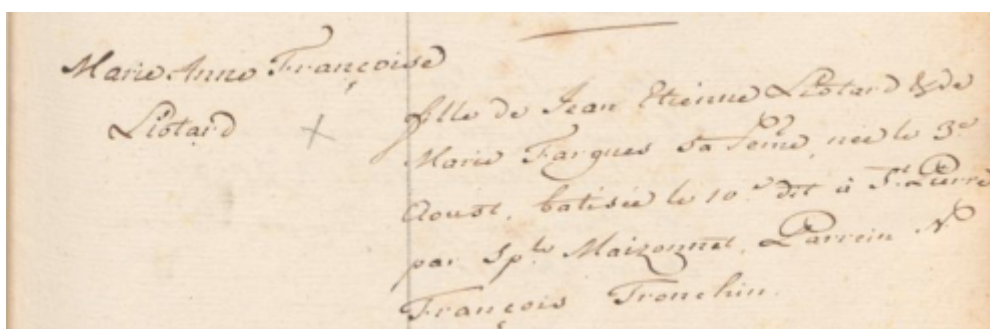 Marie Anne Françoise
Liotard
fille de Jean Etienne Liotard & de
Marie Fargues sa feme, née le 3.e
Aoust, batisée le 10.e dit à St. Pierre
par Sp.le Maizonnet, Parrein N.e
François Tronchin.